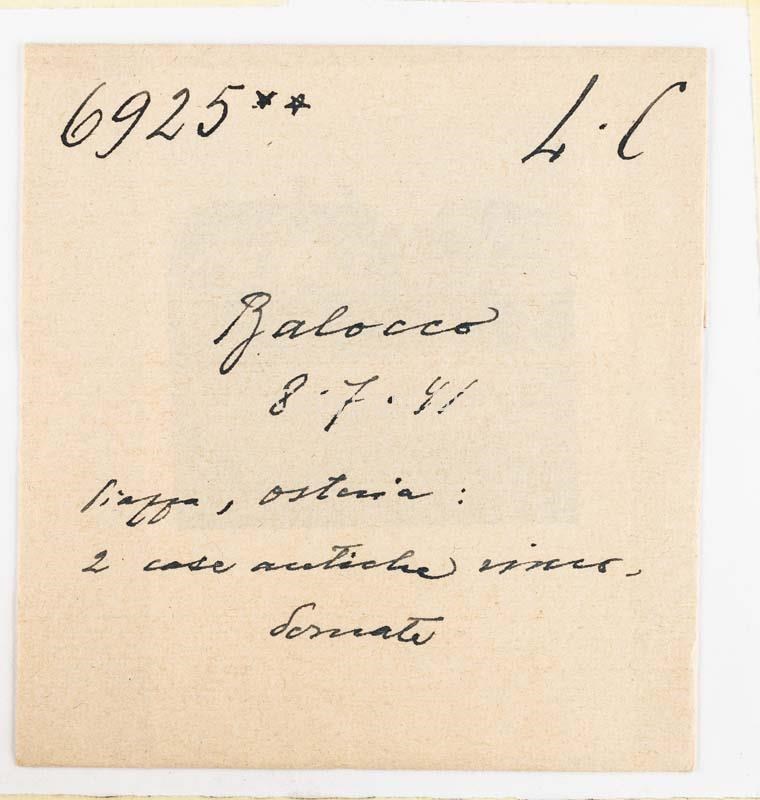 6925** L.C
Balocco
8.7.41
Piazza, osteria:
2 case antiche rimo-
dernate